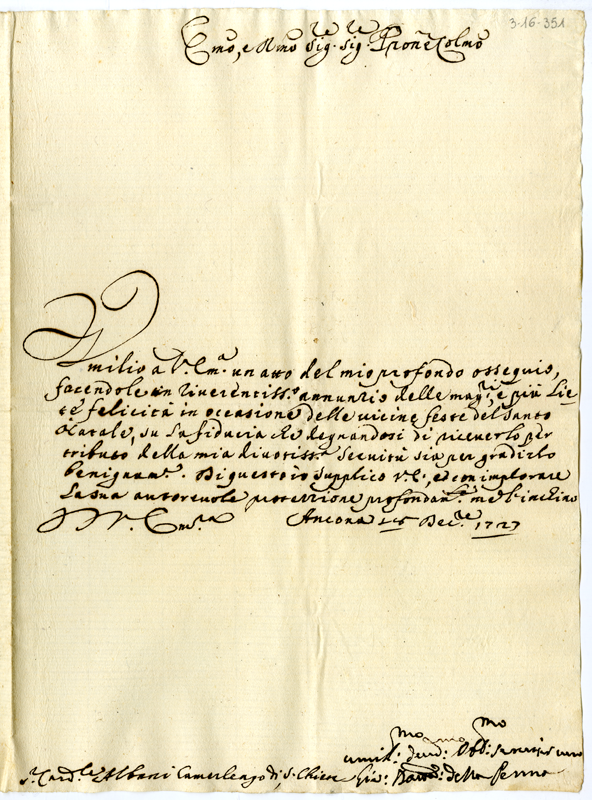 3-16-351
Emo, e Rmo Sig.re Sig.re Prone Colmo
Umilio a V. Em.a un atto del mio profondo ossequio,
facendole un riverentiss.o annunzio delle mag.ri e più Lie-
te felicità in occasione delle vicine feste del Santo
Natale, su la fiducia che degnandosi di riceverlo per
tributo della mia divotiss.a Servitù sia per gradirlo
benignam.e. Di questo io supplico V.E., ed con implorare
La sua autorevole protezzione profondam.e me l'inchino
D V. Em.za Ancona 15 Dec.e 1727
umil.mo devd.mo Obb.mo Servitore
S.r Card.le Albani Camerlengo di S. Chiesa Gio: Batt.a della Penna